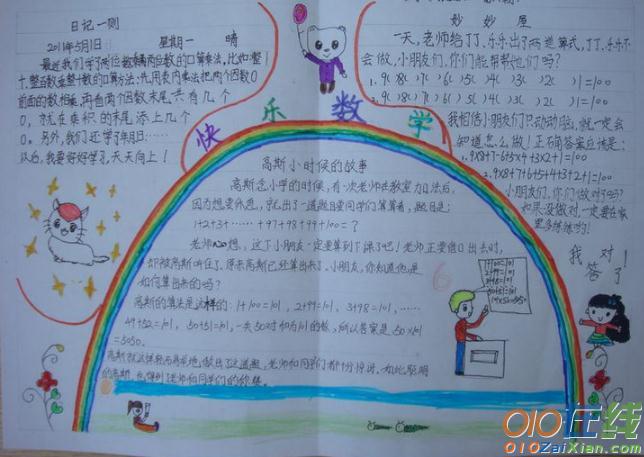 日记一则
2011年5月1日 星期一 晴
最近我们学了两位数乘两位数的口算乘法，比如：整
十、整百数乘整十数的口算方法：先用表内乘法把两个因数0
前面的数相乘，再看两个因数末尾共有几个
0，就在乘积的末尾添上几个
0。另外，我们还学了年月日……
以后，我要好好学习，天天向上！
快乐数学
妙妙屋
一天，老师给丁丁、乐乐出了两道算式，丁丁、乐乐不
会做，小朋友们，你们能帮帮他们吗？
1. 9( )8( )7( )6( )5( )4( )3( )2( )1=100
2. 9( )8( )7( )6( )5( )4( )3( )2( )1=100
我相信小朋友们只动动脑，就一定会
知道怎么做！正确答案应该是：
1. 9×8+7-6+5×4+3×2+1=100
2. 9×8+7+6+5+4+3+2+1=100
小朋友们，你们做对了吗？
如果没做对，一定要在家
里多练练哟！
我答对了！
高斯小时候的故事
高斯念小学的时候，有一次老师在教完加法后，
因为想要休息，就出了一道题目要同学们算算看，题目是：
1+2+3+……+97+98+99+100=？
老师心想，这下小朋友一定要算到下课了吧！老师正要借口出去时，
却被高斯叫住了，原来高斯已经算出来了，小朋友，你知道他是
如何算出来的吗？
高斯的算法是这样的：1+100=101，2+99=101，3+98=101，……
49+52=101，50+51=101，一共50对和为101的数，所以答案是，50×101
=5050。
1+100=101
2+99=101
3+98=101
50+51=101
101×50=5050
010在线
010ZaiXian.com